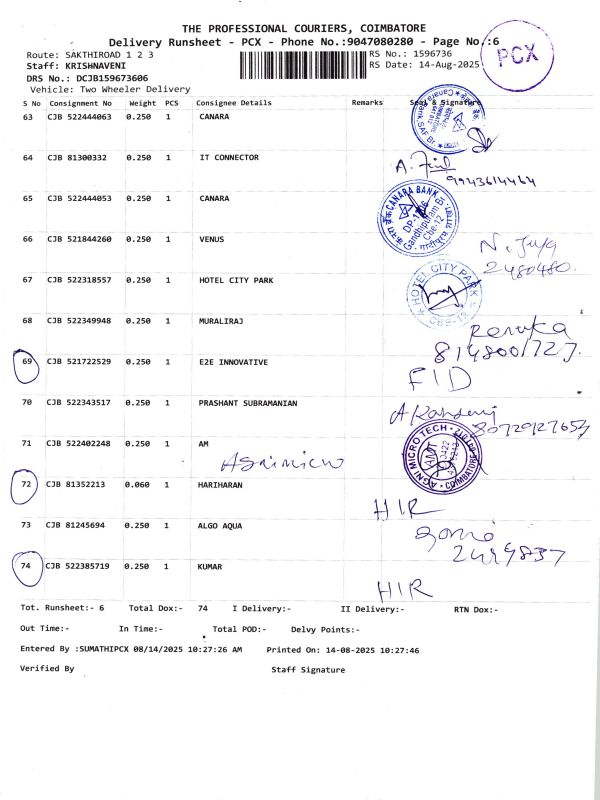 THE PROFESSIONAL COURIERS, COIMBATORE
Delivery Runsheet - PCX - Phone No.:9047080280 - Page No.:6
PCX
Route: SAKTHIROAD 1 2 3
RS No.: 1596736
Staff: KRISHNAVENI
RS Date: 14-Aug-2025
DRS No.: DCJB159673606
Vehicle: Two Wheeler Delivery
S No Consignment No Weight PCS Consignee Details Remarks Seal & Signature
63 CJB 522444063 0.250 1 CANARA
64 CJB 81300332 0.250 1 IT CONNECTOR
9943614464
65 CJB 522444053 0.250 1 CANARA
CANARA BANK
Gandhipuram Br
Cbe-12
66 CJB 521844260 0.250 1 VENUS
2480480.
67 CJB 522318557 0.250 1 HOTEL CITY PARK
HOTEL CITY PARK
CBE-12
68 CJB 522349948 0.250 1 MURALIRAJ
Renuka
8148001727.
69 CJB 521722529 0.250 1 E2E INNOVATIVE
FID
70 CJB 522343517 0.250 1 PRASHANT SUBRAMANIAN
8072927653
71 CJB 522402248 0.250 1 AM
AGNI MICRO TECH
COIMBATORE
72 CJB 81352213 0.060 1 HARIHARAN
HIR
73 CJB 81245694 0.250 1 ALGO AQUA
2449837
74 CJB 522385719 0.250 1 KUMAR
HIR
Tot. Runsheet:- 6 Total Dox:- 74 I Delivery:- II Delivery:- RTN Dox:-
Out Time:- In Time:- Total POD:- Delvy Points:-
Entered By :SUMATHIPCX 08/14/2025 10:27:26 AM Printed On: 14-08-2025 10:27:46
Verified By Staff Signature